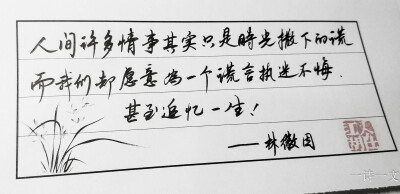 人间许多情事其实只是時光撒下的谎
而我们却愿意為一个谎言执迷不悔.
甚至追忆一生!
——林徽因